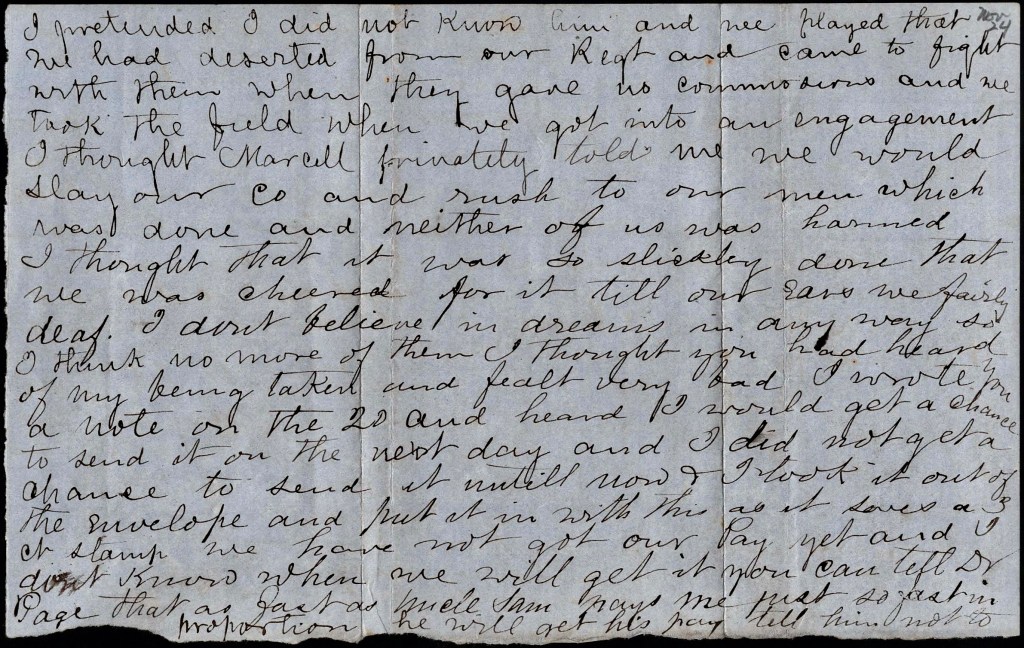 Nov 4
I pretended I did not Know him and we played that
we had deserted from our Regt and came to fight
with them when they gave us commissions and we
took the field when we got into an engagement
I thought Marcell privately told me we would
slay our Co and rush to our men which
was done and neither of us was harmed
I thought that it was so slickley done that
we was cheered for it till our ears we fairly
deaf. I dont believe in dreams in any way so
I think no more of them I thought you had heard
of my being taken and fealt very bad I wrote you
a note on the 20 and heard I would get a chance
to send it on the next day and I did not get a
chance to send it untill now & I took it out of
the envelope and put it in with this as it saves a 3
ct stamp we have not got our Pay yet and I
dont Know when we will get it you can tell Dr
Page that as fast as Uncle Sam pays me just so fast in
proportion he will get his pay tell him not to